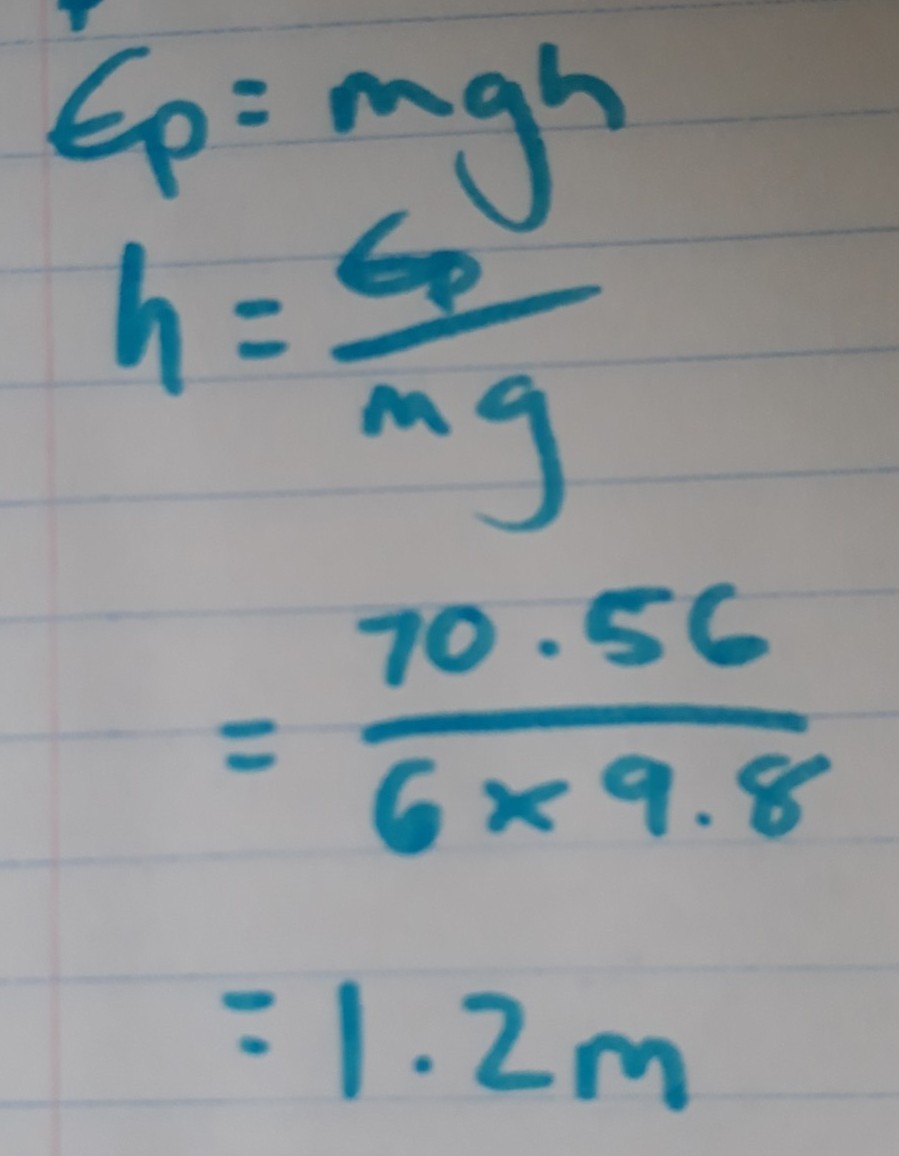 Ep = mgh
h = Ep / mg
= 70.56 / 6 × 9.8
= 1.2m